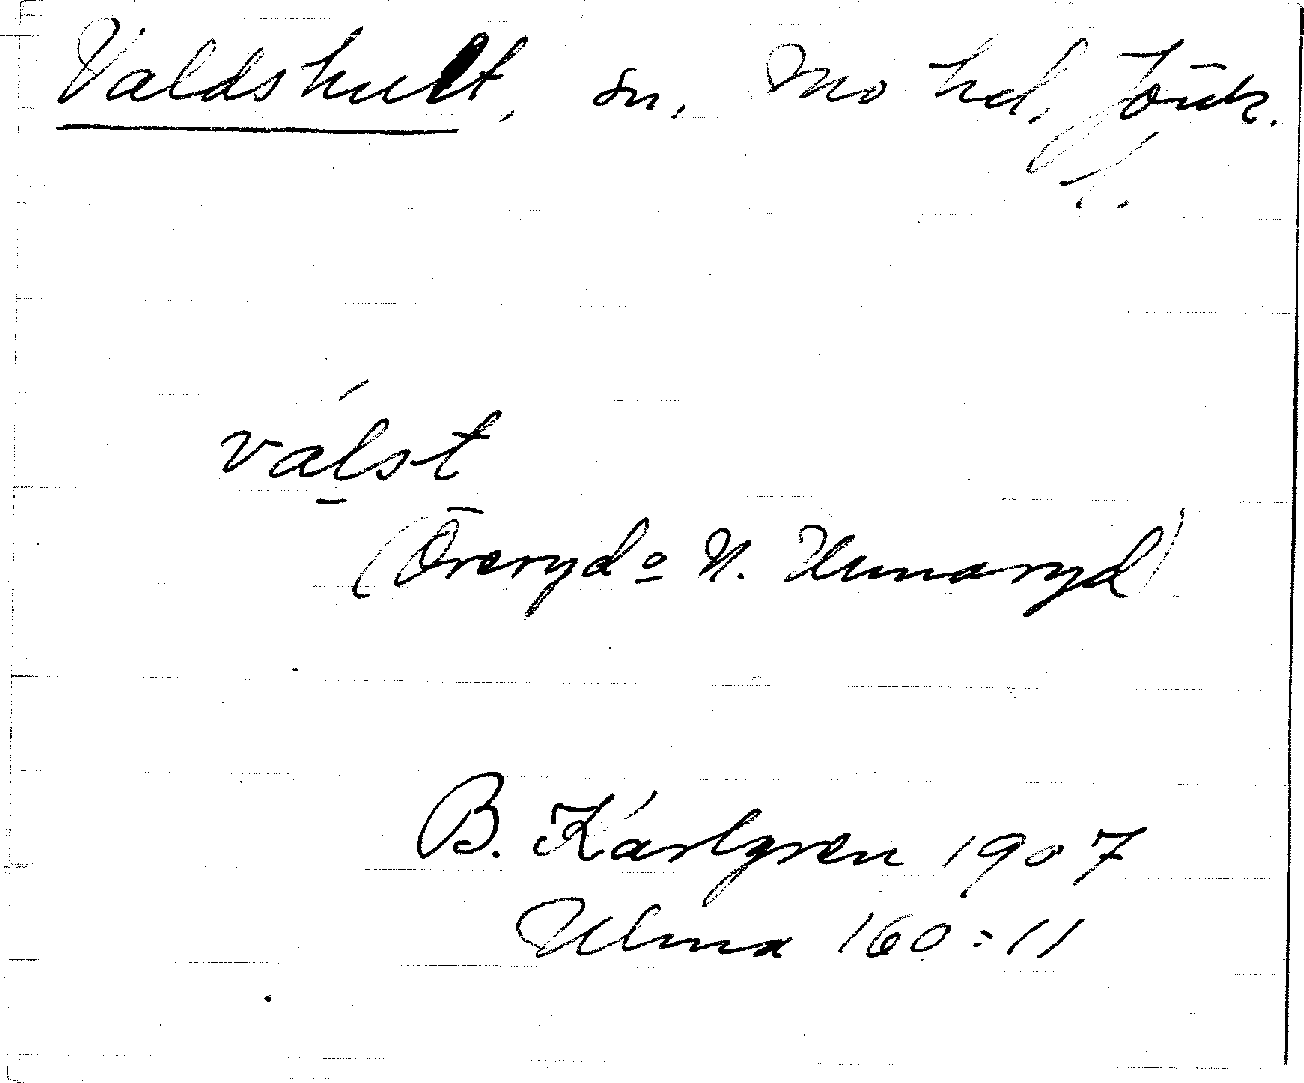 Valdshult, sn, Mo hd, Jönk.
l.
válst
(Öreryd o N. Unnaryd)
B. Karlgren 1907
Ulma 160:11